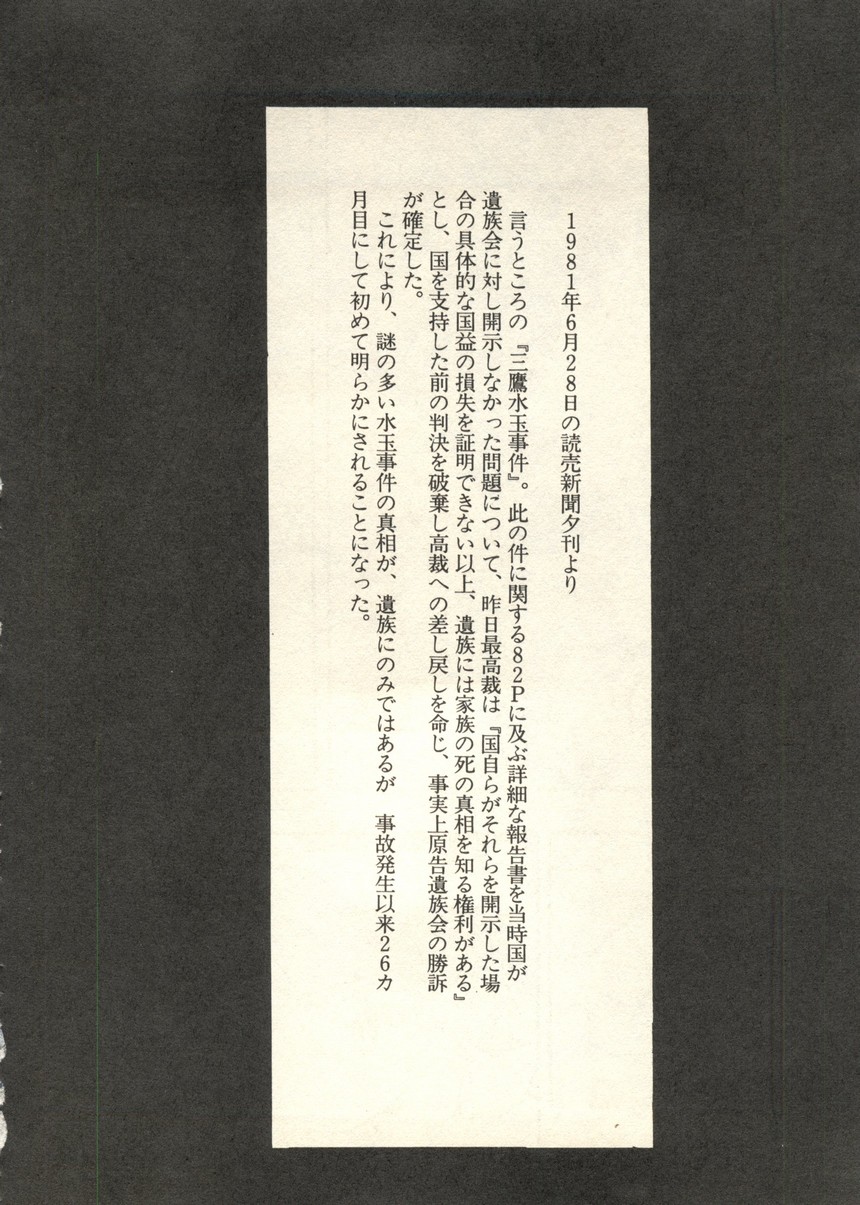 1981年6月28日の読売新聞夕刊より
言うところの『三鷹水玉事件』。此の件に関する82Pに及ぶ詳細な報告書を当時国が
遺族会に対し開示しなかった問題について、昨日最高裁は『国自らがそれらを開示した場
合の具体的な国益の損失を証明できない以上、遺族には家族の死の真相を知る権利がある』
とし、国を支持した前の判決を破棄し高裁への差し戻しを命じ、事実上原告遺族会の勝訴
が確定した。
これにより、謎の多い水玉事件の真相が、遺族にのみではあるが　事故発生以来26カ
月目にして初めて明らかにされることになった。